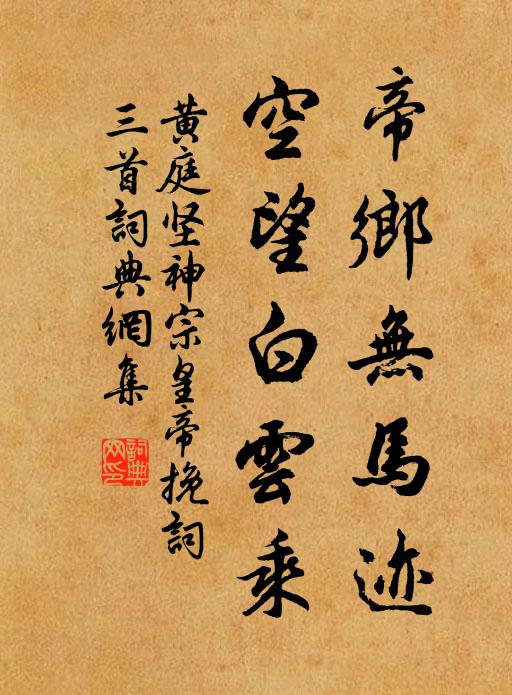 帝鄉無馬迹
空望白雲乘
黄庭坚神宗皇帝挽詞
三首詞典網集
詞典网印